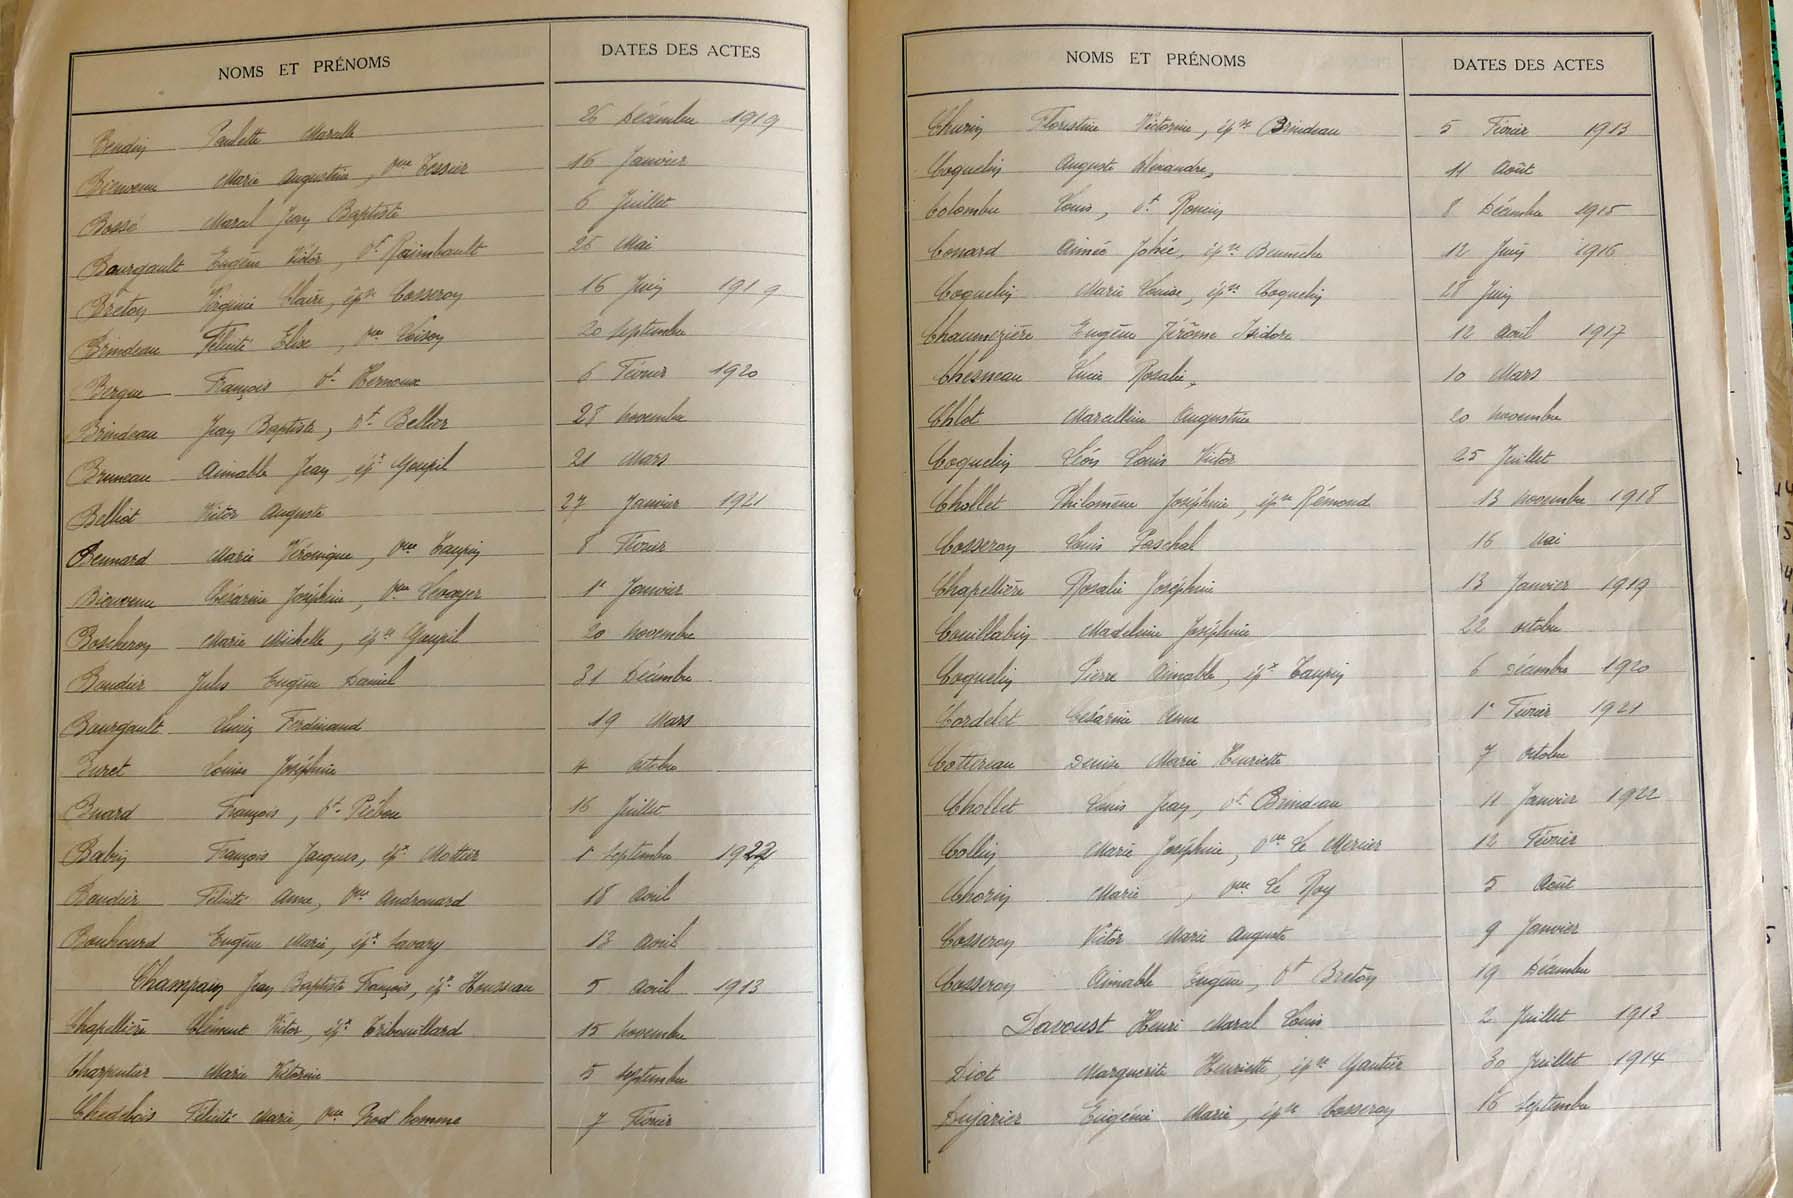 NOMS ET PRÉNOMS DATES DES ACTES
Bendin Paulette Marcelle 26 Décembre 1919
Bienvenu Marie Augustine, Vve Tessier 16 Janvier
Bossé Marcel Jean Baptiste 6 Juillet
Bourgault Eugène Victor, Vf Raimbault 25 Mai
Breton Virginie Claire, épse Cosseron 16 Juin 1919
Brindeau Félicité Elise, Vve Voison 20 Septembre
Bergue François Vf Hernoux 6 Février 1920
Brindeau Jean Baptiste, Vf Bellier 28 Novembre
Bruneau Aimable Jean, épx Goupil 21 Mars
Belliot Victor Auguste 27 Janvier 1921
Besnard Marie Véronique, Vve Taupin 8 Février
Bienvenu Césarine Joséphine, Vve 1r Janvier
Boscheron Marie Michelle, épse Goupil 20 Novembre
Baudier Jules Eugène Daniel 31 Décembre
Bourgault Lucien Ferdinand 19 Mars
Buret Louise Joséphine 4 Octobre
Buard François, Vf Piébou 16 Juillet
Babin François Jacques, épx Mottier 1r Septembre 1922
Baudier Félicité Anne, Vve Androuard 18 Avril
Bouhourd Eugène Marie, épx Savary 13 Avril
Champrain Jean Baptiste François, épx Housseau 5 Avril 1913
Chapellière Clément Victor, épx Tribouillard 15 Novembre
Charpentier Marie Victorine 5 Septembre
Chedebois Félicité Marie, Vve Prod'homme 7 Février
NOMS ET PRÉNOMS DATES DES ACTES
Churin Florestine Victorine, épse Brindeau 5 Février 1913
Coquelin Auguste Alexandre, 11 Août
Colombu Louis, Vf Roncin 8 Décembre 1915
Conard Aimée Jobée, épse 12 Juin 1916
Coquelin Marie Louise, épse Coquelin 28 Juin
Chaumezière Eugène Jérôme Isidore 12 Avril 1917
Chesneau Lucie Rosalie, 10 Mars
Chlot Marcelline Augustine 20 Novembre
Coquelin Léon Louis Victor 25 Juillet
Chollet Philomène Joséphine, épse Rémond 13 Novembre 1918
Cosseron Louis Paschal 16 Mai
Chapellière Rosalie Joséphine 13 Janvier 1919
Couillabin Madeleine Joséphine 22 Octobre
Coquelin Pierre Aimable, épx Taupin 6 Décembre 1920
Cordelet Césarine Anne 1r Février 1921
Cottereau Denise Marie Henriette 7 Octobre
Chollet Louis Jean, Vf Brindeau 11 Janvier 1922
Collin Marie Joséphine, Vve Le Mercier 12 Février
Chorin Marie, Vve Le Roy 5 Août
Cosseron Victor Marie Auguste 9 Janvier
Cosseron Aimable Eugène, Vf Breton 19 Décembre
Davoust Henri Marcel Louis 2 Juillet 1913
Diot Marguerite Henriette, épse Gautier 30 Juillet 1914
Dujarier Eugénie Marie, épse Cosseron 16 Septembre